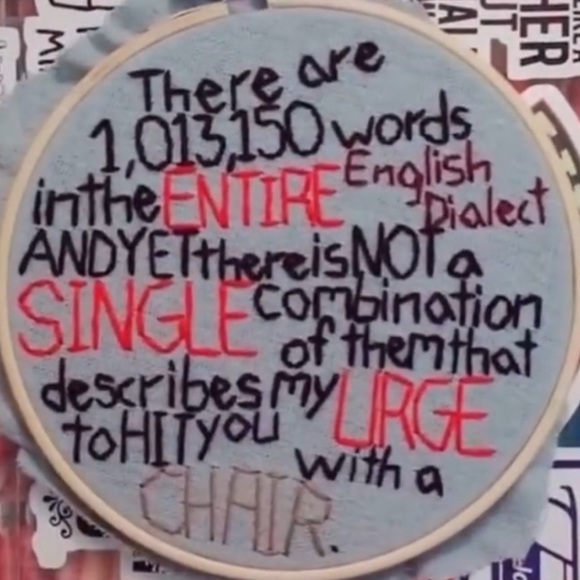 There are
1,013,150 words
in the ENTIRE English
Dialect
AND YET there is NOT a
SINGLE combination
of them that
describes my URGE
to HIT you with a
CHAIR.
HER
UT